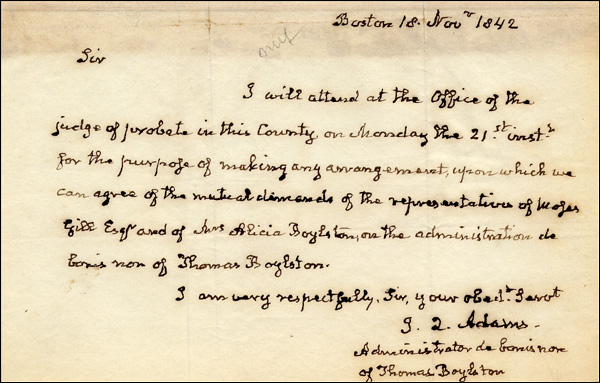 Boston 18. Novr 1842
Sir
I will attend at the Office of the
judge of probate in this County, on Monday the 21.st inst.
for the purpose of making any arrangement, upon which we
can agree of the mutual demands of the representatives of Moses
Gill Esqr and of Mrs Alicia Boylston, on the administration de
bonis non of Thomas Boylston.
I am very respectfully, Sir, your obedt. Servt
J. Q. Adams.
Administrator de bonis non
of Thomas Boylston